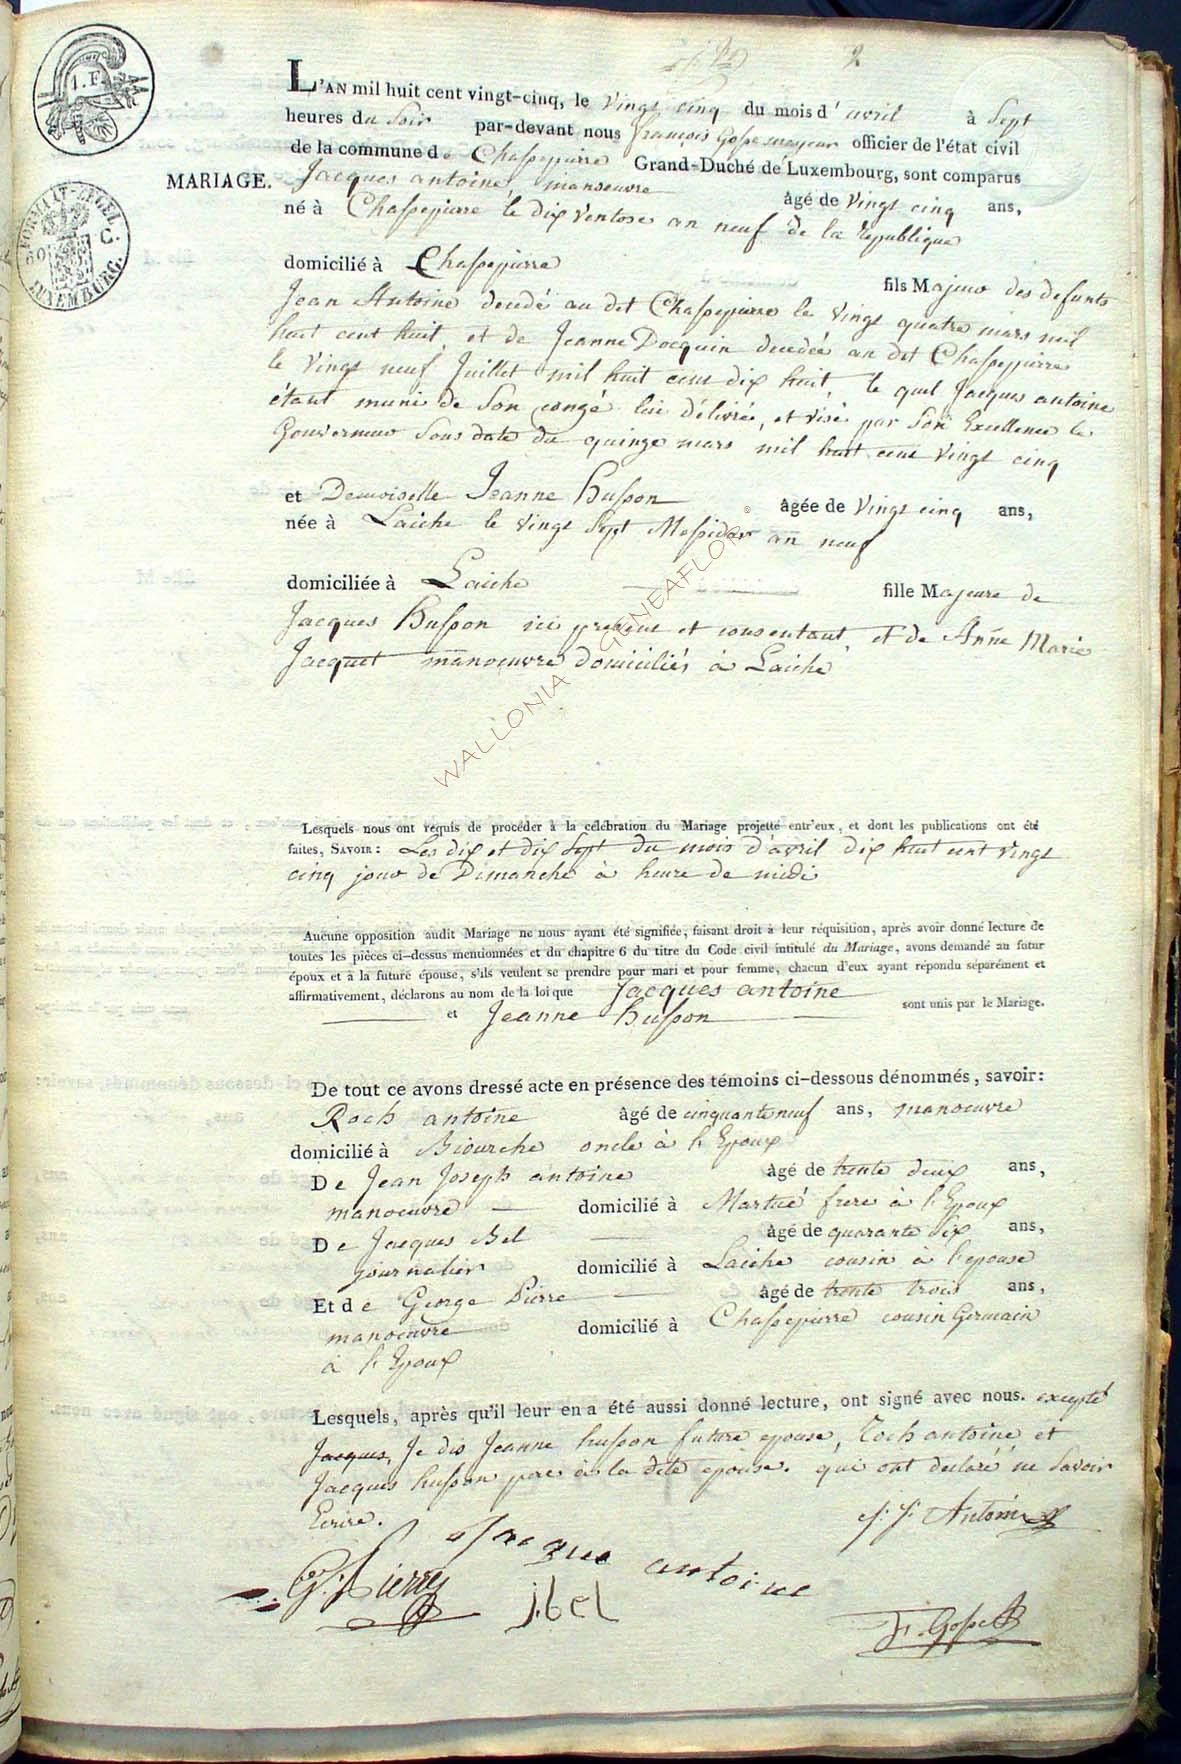 2
1. F.
FORMAAT-ZEGEL
50 C.
LUXEMBURG.
MARIAGE.
L'AN mil huit cent vingt-cinq, le vingt cinq du mois d'avril à Sept
heures du Soir par-devant nous françois Gosse mayeur officier de l'état civil
de la commune de Chassepierre Grand-Duché de Luxembourg, sont comparus
Jacques antoine, manoeuvre âgé de vingt cinq ans,
né à Chassepierre le dix Ventose an neuf de la republique
domicilié à Chassepierre fils Majeur des defunts
Jean Antoine decedé au dit Chassepierre le vingt quatre mars mil
huit cent huit, et de Jeanne Docquin decedée au dit Chassepierre
le vingt neuf Juillet mil huit cent dix huit, le quel Jacques antoine
étant muni de Son congé lui délivré, et visé par Son Excellence le
Gouverneur Sous date du quinze mars mil huit cent vingt cinq
et Demoiselle Jeanne husson âgée de vingt cinq ans,
née à Laiche le vingt Sept Messidor an neuf
domiciliée à Laiche fille Majeure de
Jacques husson ici present et consentant, et de Anne Marie
Jacquet manoeuvre domiciliés à Laiche
WALLONIA GENEAFLOR ©
Lesquels nous ont requis de procéder à la célébration du Mariage projetté entr'eux, et dont les publications ont été
faites, SAVOIR: Les dix et dix Sept du mois d'avril dix huit cent vingt
cinq jour de Dimanche à heure de midi
Aucune opposition audit Mariage ne nous ayant été signifiée, faisant droit à leur réquisition, après avoir donné lecture de
toutes les pièces ci-dessus mentionnées et du chapitre 6 du titre du Code civil intitulé du Mariage, avons demandé au futur
époux et à la future épouse, s'ils veulent se prendre pour mari et pour femme, chacun d'eux ayant répondu séparément et
affirmativement, déclarons au nom de la loi que Jacques antoine
et Jeanne husson sont unis par le Mariage.
De tout ce avons dressé acte en présence des témoins ci-dessous dénommés, savoir:
Roch antoine âgé de cinquante neuf ans, manoeuvre
domicilié à Biourche oncle à l'Epoux
De Jean Joseph antoine âgé de trente deux ans,
manoeuvre domicilié à Martué frere à l'Epoux
De Jacques Bel âgé de quarante Six ans,
journalier domicilié à Laiche cousin à l'epouse
Et de George Pierre âgé de trente trois ans,
manoeuvre domicilié à Chassepierre cousin Germain
à l'Epoux
Lesquels, après qu'il leur en a été aussi donné lecture, ont signé avec nous. excepté
Jacques, Je dis Jeanne husson future epouse, Roch antoine et
Jacques husson pere à la dite epouse. qui ont declaré ne Savoir
Ecrire.
J: J: Antoine
Jacque antoine
G: Pierre
j.bel
F. Gosse